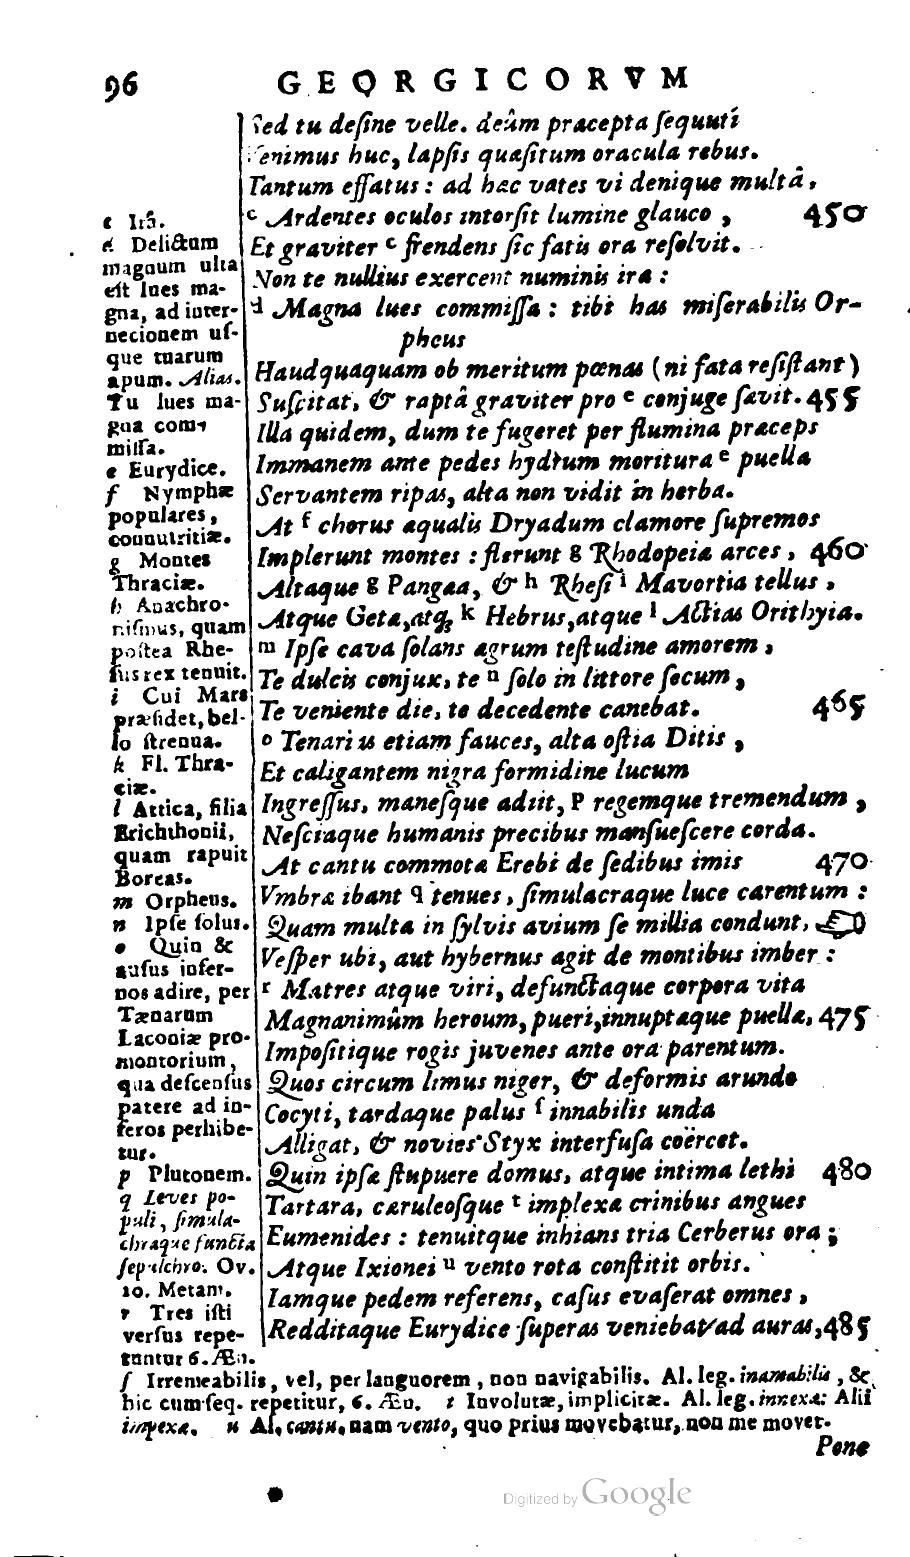 96 GEORGICORVM
Sed tu desine velle. deûm præcepta sequuti
Venimus huc, lapsis quæsitum oracula rebus.
Tantum effatus: ad hæc vates vi denique multâ,
c Ardentes oculos intorsit lumine glauco, 450
Et graviter c frendens sic fatis ora resolvit.
Non te nullius exercent numinis iræ:
d Magna lues commissa: tibi has miserabilis Or-
pheus
Haudquaquam ob meritum pœnas (ni fata resistant)
Suscitat, & raptâ graviter pro e conjuge sævit. 455
Illa quidem, dum te fugeret per flumina præceps
Immanem ante pedes hydrum moritura e puella
Servantem ripas, alta non vidit in herba.
At f chorus æqualis Dryadum clamore supremos
Implerunt montes: flerunt g Rhodopeiæ arces, 460
Altaque g Pangæa, & h Rhesi i Mavortia tellus,
Atque Getæ, atq; k Hebrus, atque l Actias Orithyia.
m Ipse cava solans ægrum testudine amorem,
Te dulcis conjux, te n solo in littore secum,
Te veniente die, te decedente canebat. 465
o Tenarius etiam fauces, alta ostia Ditis,
Et caligantem nigra formidine lucum
Ingressus, manesque adiit, p regemque tremendum,
Nesciaque humanis precibus mansuescere corda.
At cantu commotæ Erebi de sedibus imis 470
Vmbræ ibant q tenues, simulacraque luce carentum:
Quam multa in sylvis avium se millia condunt,
Vesper ubi, aut hybernus agit de montibus imber:
r Matres atque viri, defunctaque corpora vita
Magnanimûm heroum, pueri, innuptæque puellæ, 475
Impositique rogis juvenes ante ora parentum.
Quos circum limus niger, & deformis arundo
Cocyti, tardaque palus s innabilis unda
Alligat, & novies Styx interfusa coërcet.
Quin ipsæ stupuere domus, atque intima lethi 480
Tartara, cæruleosque t implexæ crinibus angues
Eumenides: tenuitque inhians tria Cerberus ora;
Atque Ixionei u vento rota constitit orbis.
Iamque pedem referens, casus evaserat omnes,
Redditaque Eurydice superas veniebat ad auras, 485
c Itâ.
d Delictum
magnum ulta
est lues ma-
gna, ad inter-
necionem us-
que tuarum
apum. Alias.
Tu lues ma-
gna com-
missa.
e Eurydice.
f Nymphæ
populares,
connutritiæ.
g Montes
Thraciæ.
h Anachro-
nismus, quam
postea Rhe-
sus rex tenuit.
i Cui Mars
præsidet, bel-
lo strenua.
k Fl. Thra-
ciæ.
l Attica, filia
Erichthonii,
quam rapuit
Boreas.
m Orpheus.
n Ipse solus.
o Quin &
ausus infer-
nos adire, per
Tænarum
Laconiæ pro-
montorium,
qua descensus
patere ad in-
feros perhibe-
tur.
p Plutonem.
q Leves po-
puli, simula-
chraque functa
sepulchro. Ov.
10. Metam.
r Tres isti
versus repe-
tuntur 6. Æn.
s Irremeabilis, vel, per languorem, non navigabilis. Al. leg. inamabilis, &
hic cum seq. repetitur, 6. Æn. t Involutæ, implicitæ. Al. leg. innexæ: Alii
impexæ. u Al. cantu, nam vento, quo prius movebatur, non me movet.
Pone
Digitized by Google